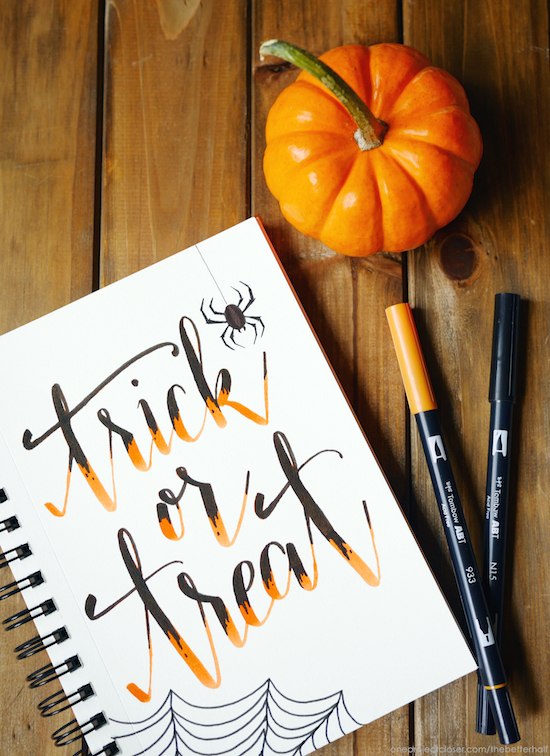 trick
or
treat
Tombow ABT
933
Tombow ABT
N15
onelittle@closer.com/thebetterhalf